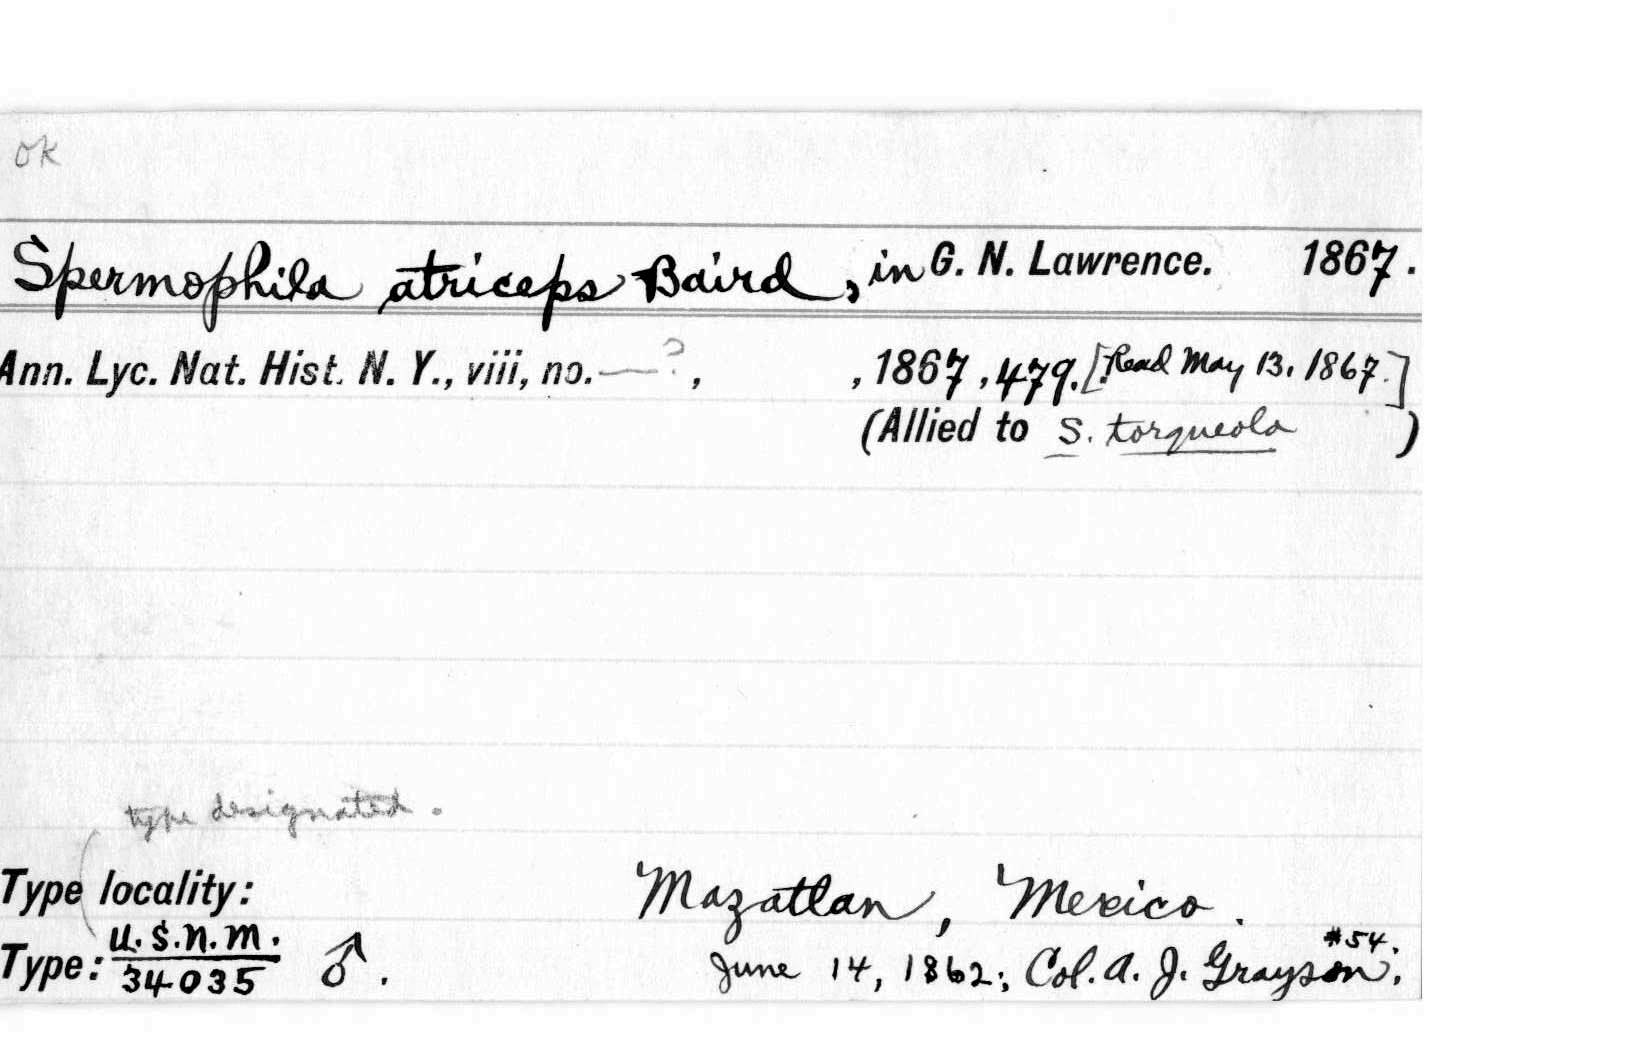 ok
Spermophila atriceps Baird, in G. N. Lawrence. 1867.
Ann. Lyc. Nat. Hist. N. Y., viii, no. —?, , 1867, 479. [Read May 13, 1867.]
(Allied to S. torqueola )
type designated.
Type locality: Mazatlan, Mexico.
U.S.N.M. #54.
Type: 34035 ♂. June 14, 1862; Col. A. J. Grayson.